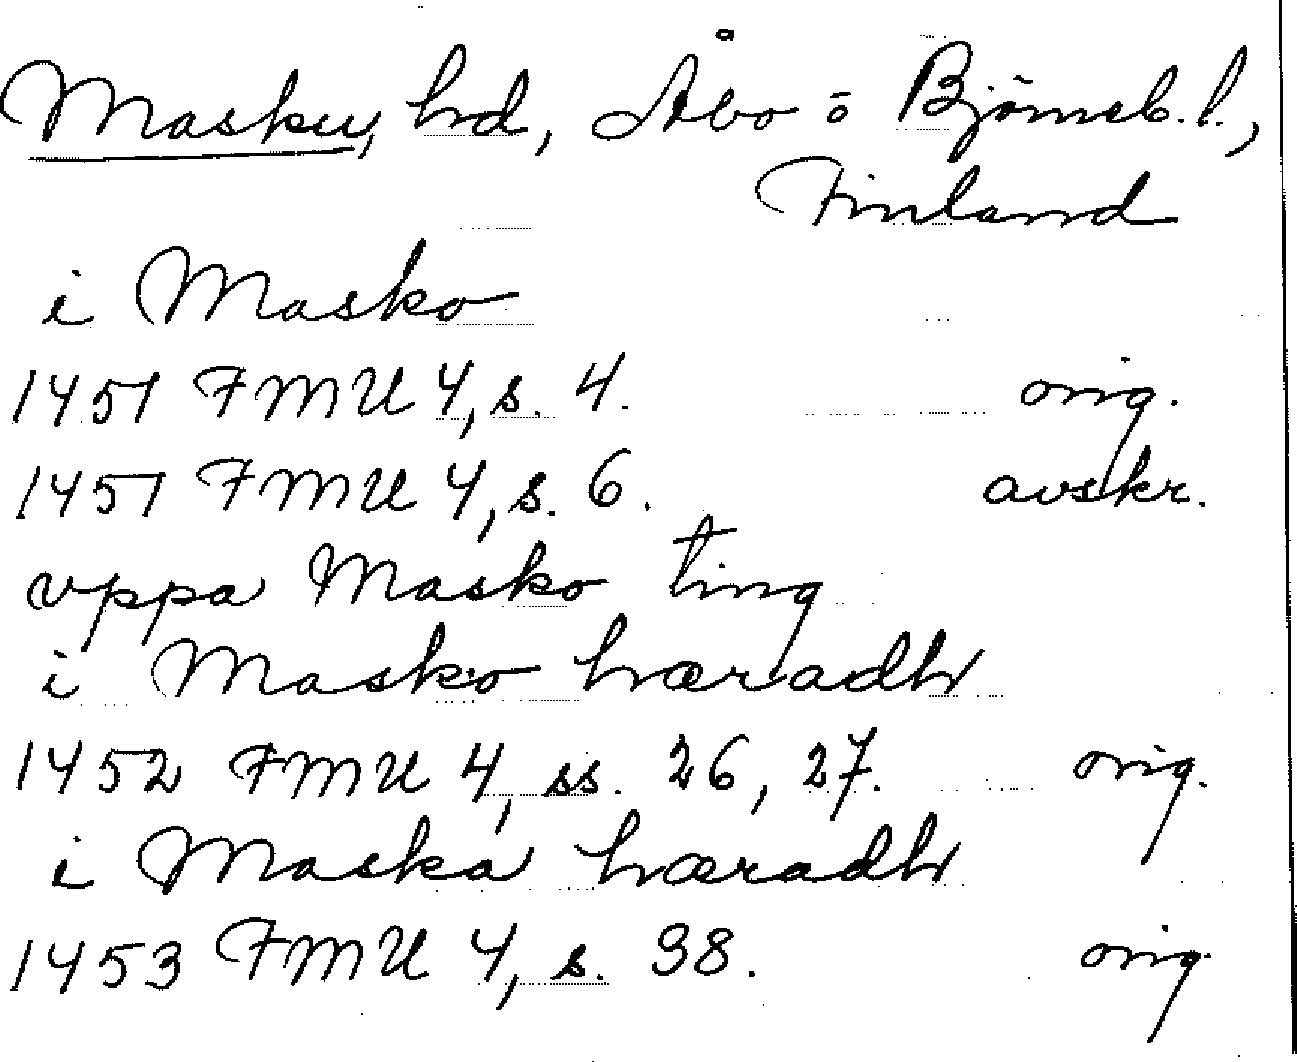 Masku, hd, Åbo o Björneb. l.,
Finland
i Masko
1451 FMU 4, s. 4. orig.
1451 FMU 4, s. 6. avskr.
vppa Masko ting
i Masko hæradh
1452 FMU 4, ss. 26, 27. orig.
i Maska hæradh
1453 FMU 4, s. 38. orig.